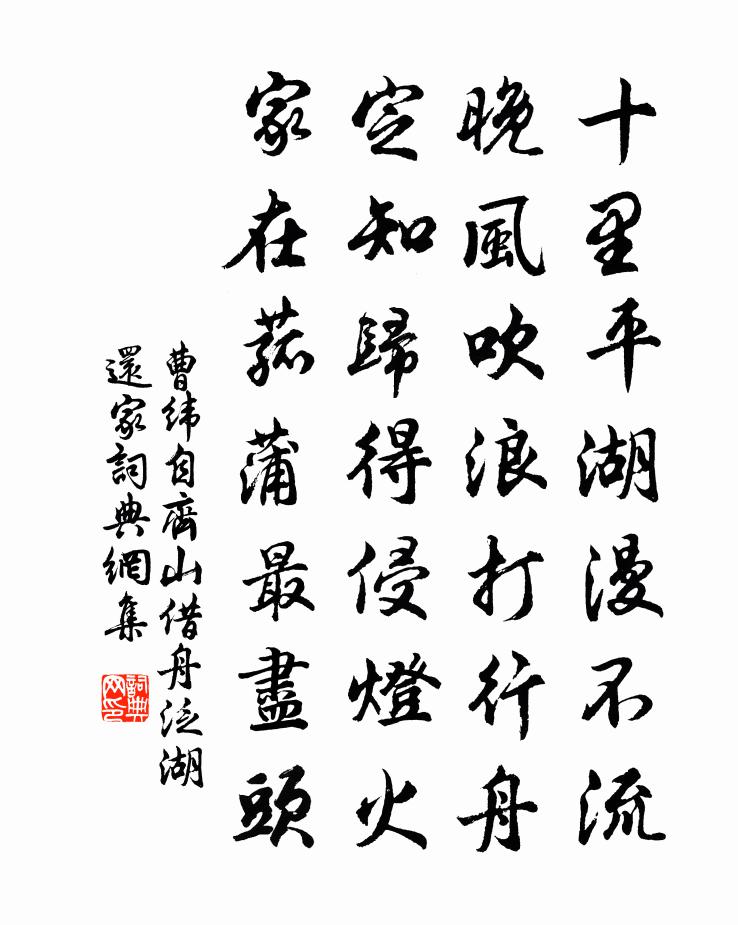 十里平湖漫不流
晚風吹浪打行舟
定知歸得侵燈火
家在菰蒲最盡頭
曹緯自齊山借舟泛湖
還家詞典網集
詞典网印